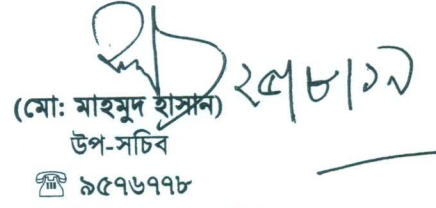 ২৫/৮/১৯
(মো: মাহমুদ হাসান)
উপ-সচিব
☎ ৯৫৭৬৭৭৮